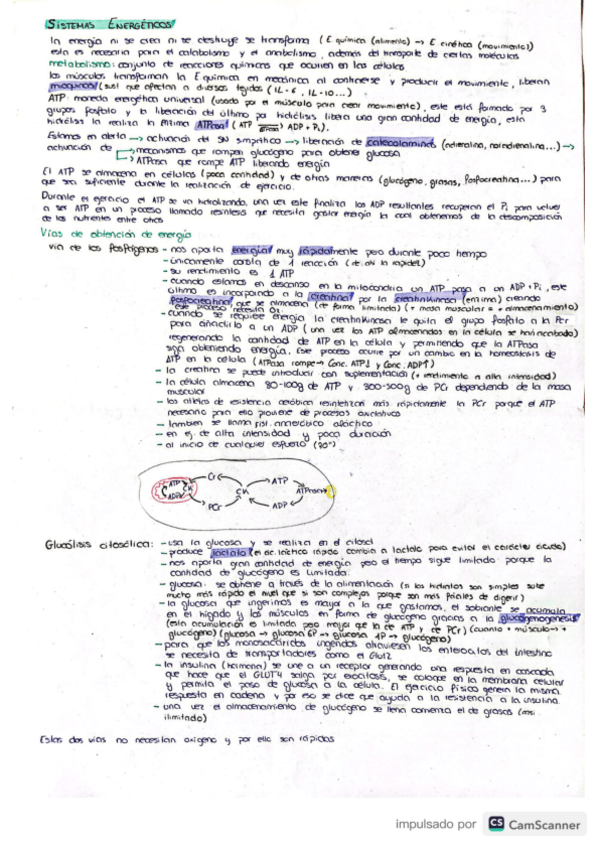 SISTEMAS ENERGÉTICOS
la energía ni se crea ni se destruye se transforma (E química (alimento) → E cinética (movimiento))
esta es necesaria para el catabolismo y el anabolismo, además del transporte de ciertas moléculas
metabolismo: conjunto de reacciones químicas que ocurren en las células
los músculos transforman la E química en mecánica al contraerse y producir el movimiento, liberan
mioquinas (sust que afectan a diversos tejidos (IL-6, IL-10...)
ATP moneda energética universal (usado por el músculo para crear movimiento), este está formado por 3
grupos fosfato y la liberación del último por hidrólisis libera una gran cantidad de energía, esta
hidrólisis la realiza la enzima ATPasa (ATP → ADP + Pi).
Estamos en alerta → activación del SN simpático → liberación de catecolaminas (adrenalina, noradrenalina...) →
activación de → mecanismos que rompen glucógeno para obtener glucosa
→ ATPasa que rompe ATP liberando energía
El ATP se almacena en células (poca cantidad) y de otras maneras (glucógeno, grasas, fosfocreatina...) para
que sea suficiente durante la realización de ejercicio.
Durante el ejercicio el ATP se va hidrolizando, una vez este finaliza los ADP resultantes recuperan el Pi para volver
a ser ATP en un proceso llamado resíntesis que necesita gastar energía la cual obtenemos de la descomposición
de los nutrientes entre otros
Vías de obtención de energía
vía de los fosfágenos - nos aporta energía muy rápidamente pero durante poco tiempo
- únicamente consta de 1 reacción (de ahí la rapidez)
- su rendimiento es 1 ATP
- cuando estamos en descanso en la mitocondria un ATP pasa a un ADP + Pi, este
último es incorporado a la creatina por la creatinkinasa (enzima) creando
fosfocreatina que se almacena (de forma limitada) (+ masa muscular = + almacenamiento)
este proceso necesita O2
- cuando se requiere energía la creatinkinasa le quita el grupo fosfato a la PCr
para añadirlo a un ADP (una vez los ATP almacenados en la célula se han agotado)
regenerando la cantidad de ATP en la célula y permitiendo que la ATPasa
siga obteniendo energía. Este proceso ocurre por un cambio en la homeostasis de
ATP en la célula (ATPasa rompe → Conc. ATP↓ y Conc. ADP↑)
- la creatina se puede introducir con suplementación (+ rendimiento a alta intensidad)
- la célula almacena 80-100g de ATP y 300-500g de PCr dependiendo de la masa
muscular
- los atletas de resistencia aeróbica resintetizan más rápidamente la PCr porque el ATP
necesario para eso proviene de procesos oxidativos
- también se llama sist. anaeróbico aláctico
- en ej. de alta intensidad y poca duración
- al inicio de cualquier esfuerzo (20")
ATP
ADP
CK
Cr
PCr
CK
ATP
ADP
ATPasa
Glucólisis citosólica: - usa la glucosa y se realiza en el citosol
- produce lactato (el ác. láctico rápido cambia a lactato para evitar el carácter ácido)
- nos aporta gran cantidad de energía pero el tiempo sigue limitado porque la
cantidad de glucógeno es limitada
- glucosa: se obtiene a través de la alimentación (si los hidratos son simples sube
mucho más rápido el nivel que si son complejos porque son más fáciles de digerir)
- la glucosa que ingerimos es mayor a la que gastamos, el sobrante se acumula
en el hígado y los músculos en forma de glucógeno gracias a la glucogenogénesis
(esta acumulación es limitada pero mayor que la de ATP y de PCr) (cuanto + músculo → +
glucógeno) (glucosa → glucosa 6P → glucosa 1P → glucógeno)
- para que los monosacáridos ingeridos atraviesen los enterocitos del intestino
se necesita de transportadores como el Glut2
- la insulina (hormona) se une a un receptor generando una respuesta en cascada
que hace que el GLUT4 salga por exocitosis, se coloque en la membrana celular
y permita el paso de glucosa a la célula. El ejercicio físico genera la misma
respuesta en cadena y por eso se dice que ayuda a la resistencia a la insulina.
- una vez el almacenamiento de glucógeno se llena comienza el de grasas (casi
ilimitado)
Estas dos vías no necesitan oxígeno y por ello son rápidas
impulsado por CS CamScanner